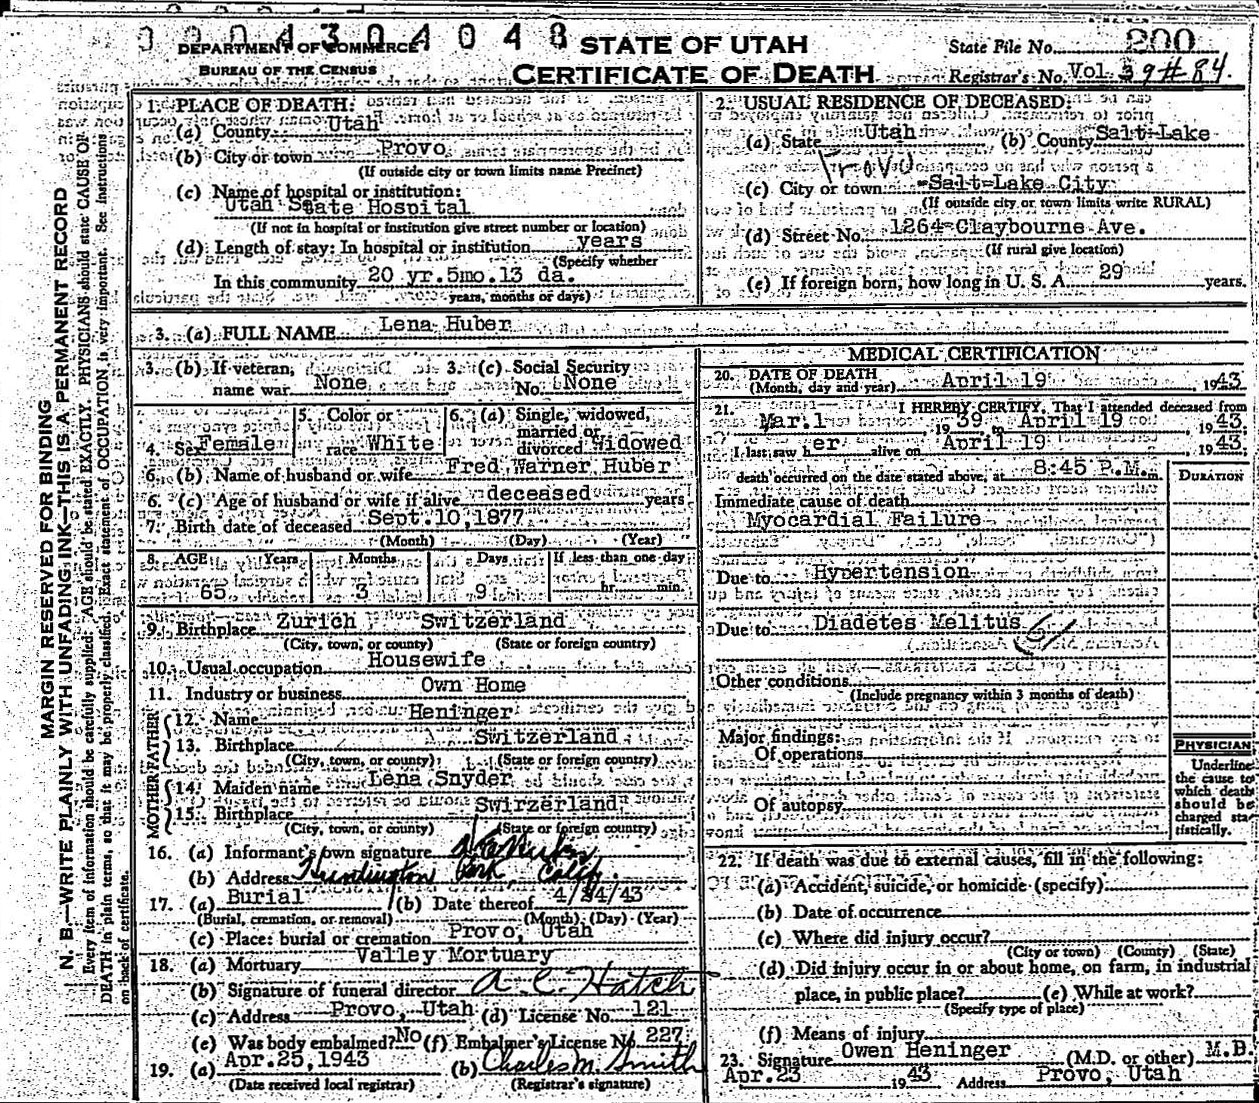 0004304048
DEPARTMENT OF COMMERCE
BUREAU OF THE CENSUS
STATE OF UTAH
CERTIFICATE OF DEATH
State File No. 200
Registrar's No. Vol. 39 # 84.
MARGIN RESERVED FOR BINDING
N. B.—WRITE PLAINLY WITH UNFADING INK—THIS IS A PERMANENT RECORD
Every item of information should be carefully supplied. AGE should be stated EXACTLY. PHYSICIANS should state CAUSE OF
DEATH in plain terms, so that it may be properly classified. Exact statement of OCCUPATION is very important. See instructions
on back of certificate.
1. PLACE OF DEATH:
(a) County Utah
(b) City or town Provo
(If outside city or town limits name Precinct)
(c) Name of hospital or institution:
Utah State Hospital
(If not in hospital or institution give street number or location)
(d) Length of stay: In hospital or institution years
(Specify whether
In this community 20 yr. 5mo. 13 da.
years, months or days)
2. USUAL RESIDENCE OF DECEASED:
(a) State Utah (b) County Salt Lake
Provo
(c) City or town Salt Lake City
(If outside city or town limits write RURAL)
(d) Street No. 1264 Claybourne Ave.
(If rural give location)
(e) If foreign born, how long in U. S. A. 29 years.
3. (a) FULL NAME Lena Huber
3. (b) If veteran, name war None
3. (c) Social Security No. None
4. Sex Female
5. Color or race White
6. (a) Single, widowed, married or divorced Widowed
6. (b) Name of husband or wife Fred Warner Huber
6. (c) Age of husband or wife if alive deceased years
7. Birth date of deceased Sept. 10, 1877
(Month) (Day) (Year)
8. AGE Years Months Days If less than one day
65 3 9 hr. min.
9. Birthplace Zurich Switzerland
(City, town, or county) (State or foreign country)
10. Usual occupation Housewife
11. Industry or business Own Home
FATHER
12. Name Heninger
13. Birthplace Switzerland
(City, town, or county) (State or foreign country)
MOTHER
14. Maiden name Lena Snyder
15. Birthplace Swirzerland
(City, town, or county) (State or foreign country)
16. (a) Informant's own signature
(b) Address Huntington Park, Calif.
17. (a) Burial (b) Date thereof 4/24/43
(Burial, cremation, or removal) (Month) (Day) (Year)
(c) Place: burial or cremation Provo, Utah
18. (a) Mortuary Valley Mortuary
(b) Signature of funeral director A. C. Hatch
(c) Address Provo, Utah (d) License No. 121
(e) Was body embalmed? No (f) Embalmer's License No. 227
19. (a) Apr. 25, 1943 (b) Charles M. Smith
(Date received local registrar) (Registrar's signature)
MEDICAL CERTIFICATION
20. DATE OF DEATH
(Month, day and year) April 19, 1943
21. I HEREBY CERTIFY, That I attended deceased from
Mar. 1 1939 to April 19, 1943.
I last saw her alive on April 19, 1943.
death occurred on the date stated above, at 8:45 P.M. m.
DURATION
Immediate cause of death
Myocardial Failure
Due to Hypertension
Due to Diadetes Melitus 61
Other conditions
(Include pregnancy within 3 months of death)
Major findings:
Of operations
Of autopsy
PHYSICIAN
Underline
the cause to
which death
should be
charged sta-
tistically.
22. If death was due to external causes, fill in the following:
(a) Accident, suicide, or homicide (specify)
(b) Date of occurrence
(c) Where did injury occur?
(City or town) (County) (State)
(d) Did injury occur in or about home, on farm, in industrial
place, in public place? (e) While at work?
(Specify type of place)
(f) Means of injury
23. Signature Owen Heninger (M.D. or other) M.D.
Apr. 23 1943 Address Provo, Utah